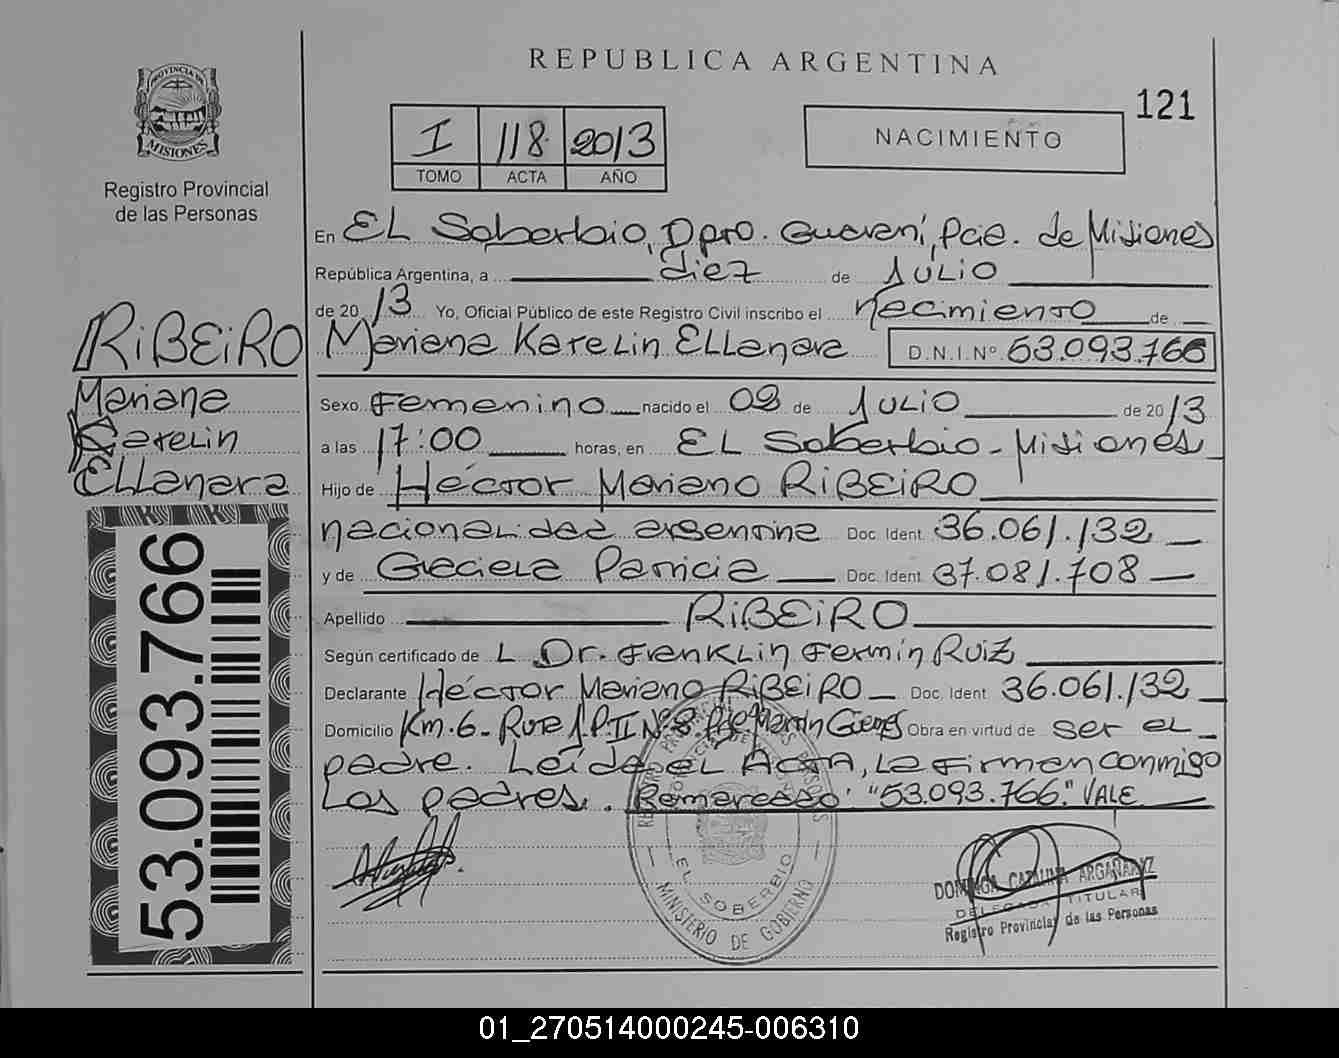 REPUBLICA ARGENTINA
121
PROVINCIA DE
MISIONES
Registro Provincial
de las Personas
I 118 2013
TOMO ACTA AÑO
NACIMIENTO
En EL Soberbio, Dpto. Guaraní, Pcia. de Misiones
República Argentina, a diez de JULIO
de 2013 Yo, Oficial Público de este Registro Civil inscribo el nacimiento de
Mariana Karelin ELLanara D.N.I.Nº 53.093.766
RiBEiRO
Mariana
Karelin
ELLanara
53.093.766
Sexo Femenino nacido el 02 de JULIO de 2013
a las 17:00 horas, en EL Soberbio - Misiones
Hijo de Héctor Mariano RiBEiRO
nacionalidad argentina Doc. Ident. 36.061.132
y de Graciela Patricia Doc. Ident. 37.081.708
Apellido RiBEiRO
Según certificado de L Dr. Franklin Fermín Ruiz
Declarante Héctor Mariano RiBEiRO Doc. Ident. 36.061.132
Domicilio Km. 6 - Ruta Nº 8 Martín Güemes Obra en virtud de ser el
padre. Leída el Acta, la firman conmigo
Los padres. Remarcado "53.093.766" VALE
EL SOBERBIO
MINISTERIO DE GOBIERNO
DOMINGA CATALINA ARGAÑARAZ
DELEGADA TITULAR
Registro Provincial de las Personas
01_270514000245-006310